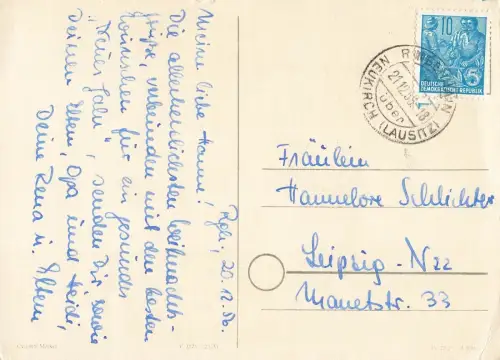 20.12.56.
Meine liebe Hanne!
Die allerherzlichsten Weihnachts-
grüße, verbunden mit den besten
Wünschen für ein gesundes
"Neues Jahr", senden Dir sowie
Deinen Eltern, Opa und Heidi,
Deine Rena u. Eltern
10
5
DEUTSCHE
DEMOKRATISCHE REPUBLIK
über
NEUKIRCH (LAUSITZ)
Fräulein
Hannelore Schlichter
Leipzig-N22
Manetstr. 33